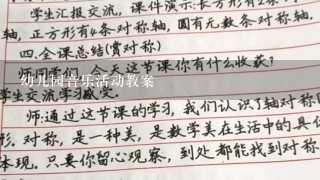 学生汇报交流，课件演示：长方形有2条
轴，正方形有4条对称轴，圆有无数条对称轴.
四.全课总结(赏对称)
今天这节课你有什么收获?
幼儿园音乐活动教案
学生交流学习
师:通过这节课的学习，我们认识了轴对称
形.对称，是一种美，是数学美在生活中的具
体现.只要你留心观察，到处都能找到对称